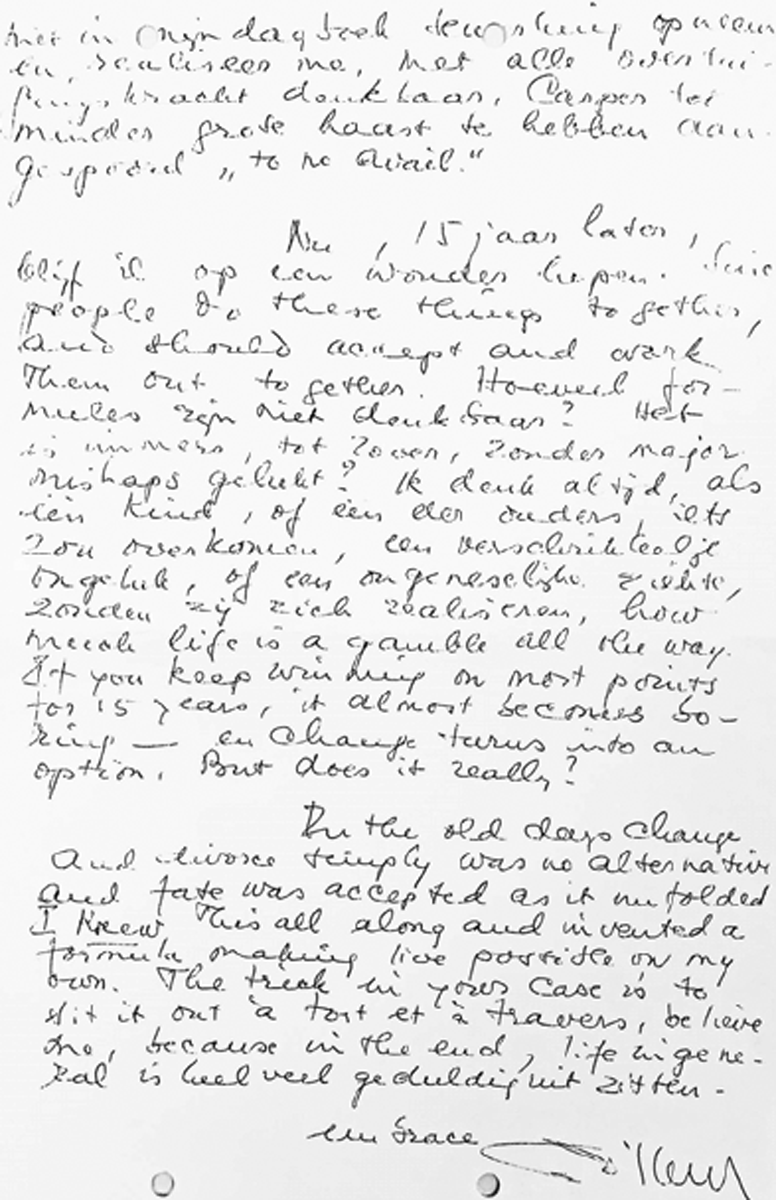 met in mijn dagboek terugkijking opnieuw
en realiseer me, met alle overtui-
gingskracht denkbaar, Casper tot
minder grote haast te hebben aan-
gespoord „to no avail."
Nu, 15 jaar later,
blijf ik op een wonder hopen.
people do these things together,
and should accept and work
them out together. Hoeveel for-
mules zijn niet denkbaar? Het
is immers, tot zover, zonder major
mishaps gelukt? Ik denk altijd, als
één kind, of één der ouders, iets
zou overkomen, een verschrikkelijk
ongeluk, of een ongeneselijke ziekte,
zouden zij zich realiseren, how
much life is a gamble all the way.
If you keep winning on most points
for 15 years, it almost becomes bo-
ring — en change turns into an
option. But does it really?
In the old days change
and divorce simply was no alternative
and fate was accepted as it unfolded
I knew this all along and invented a
formula making live possible on my
own. The trick in yours case is to
sit it out à tort et à travers, believe
me, because in the end, life in gene-
ral is heel veel geduldig uit zitten.